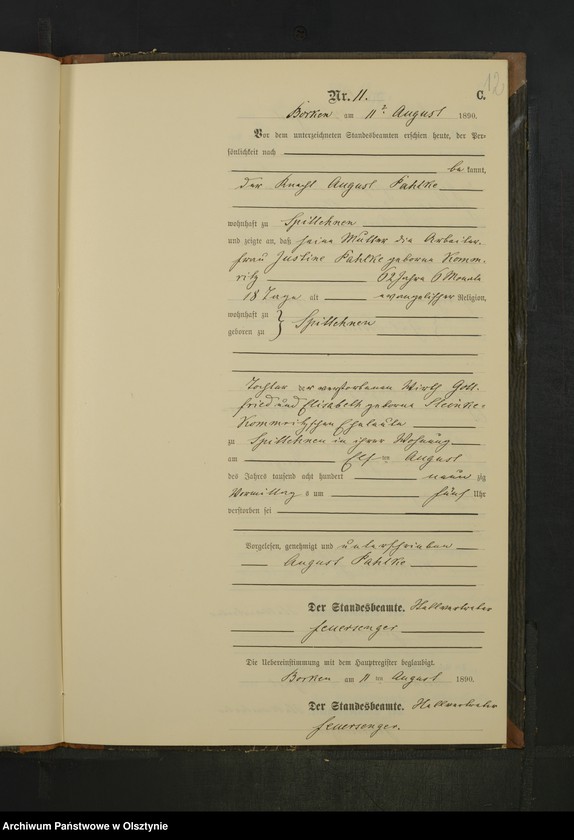 12
Nr. 11. C.
Borken am 11ten August 1890.
Vor dem unterzeichneten Standesbeamten erschien heute, der Per-
sönlichkeit nach
be kannt,
der Knecht August Pahlke
wohnhaft zu Spittehnen
und zeigte an, daß seine Mutter die Arbeiter-
frau Justine Pahlke geborne Komm-
ritz 62 Jahre 6 Monate
18 Tage alt evangelischer Religion,
wohnhaft zu
geboren zu } Spittehnen
Tochter der verstorbenen Wirth Gott-
fried und Elisabeth geborne Steinke-
Kommritzschen Eheleute
zu Spittehnen in ihrer Wohnung
am Elften August
des Jahres tausend acht hundert neun zig
Vormittag s um fünf Uhr
verstorben sei
Vorgelesen, genehmigt und unterschrieben
August Pahlke
Der Standesbeamte. Stellvertreter
Feuersenger
Die Uebereinstimmung mit dem Hauptregister beglaubigt.
Borken am 11ten August 1890.
Der Standesbeamte. Stellvertreter
Feuersenger.
Archiwum Państwowe w Olsztynie